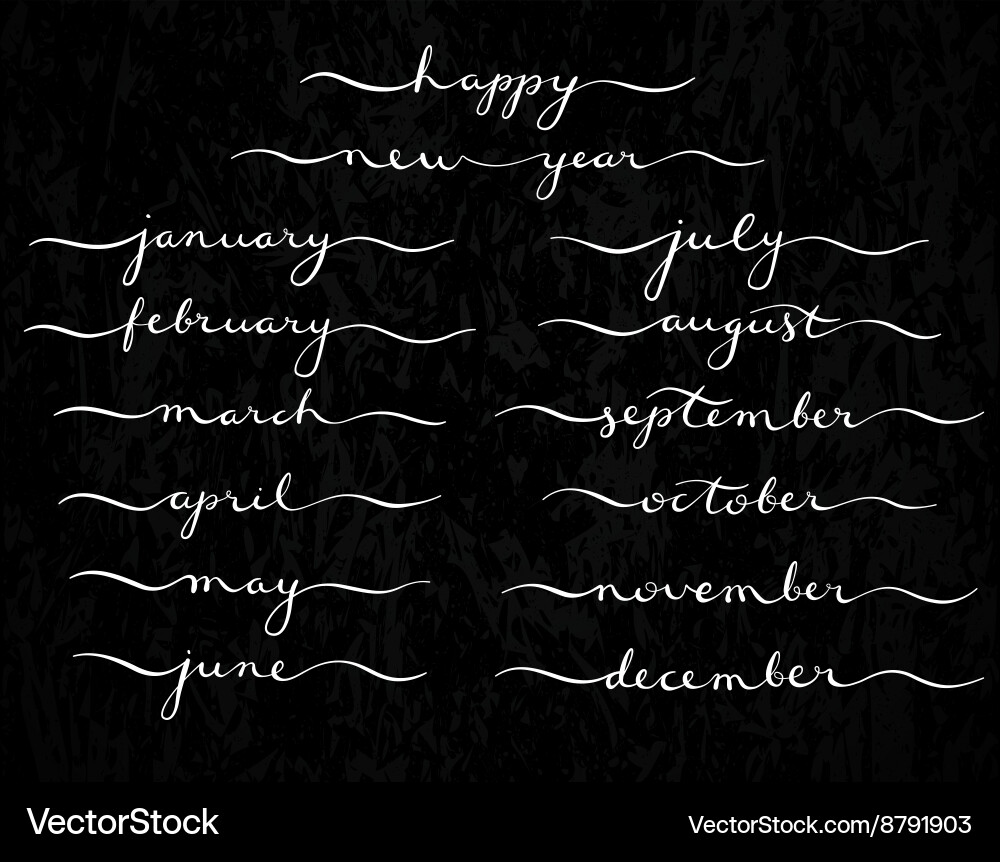 happy
new year
january
february
march
april
may
june
july
august
september
october
november
december
VectorStock
VectorStock.com/8791903